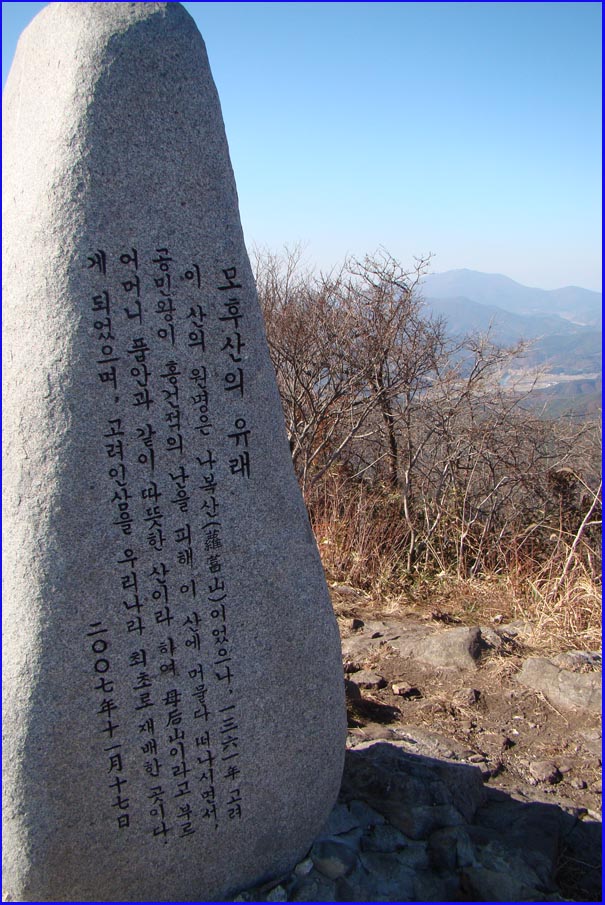 모후산의 유래
이 산의 원명은 나복산(蘿葍山)이었으나, 一三六一年 고려
공민왕이 홍건적의 난을 피해 이 산에 머물다 떠나시면서,
어머니 품안과 같이 따뜻한 산이라 하여 母后山이라고 부르
게 되었으며, 고려인삼을 우리나라 최초로 재배한 곳이다.
二００七年 十一月 十七日